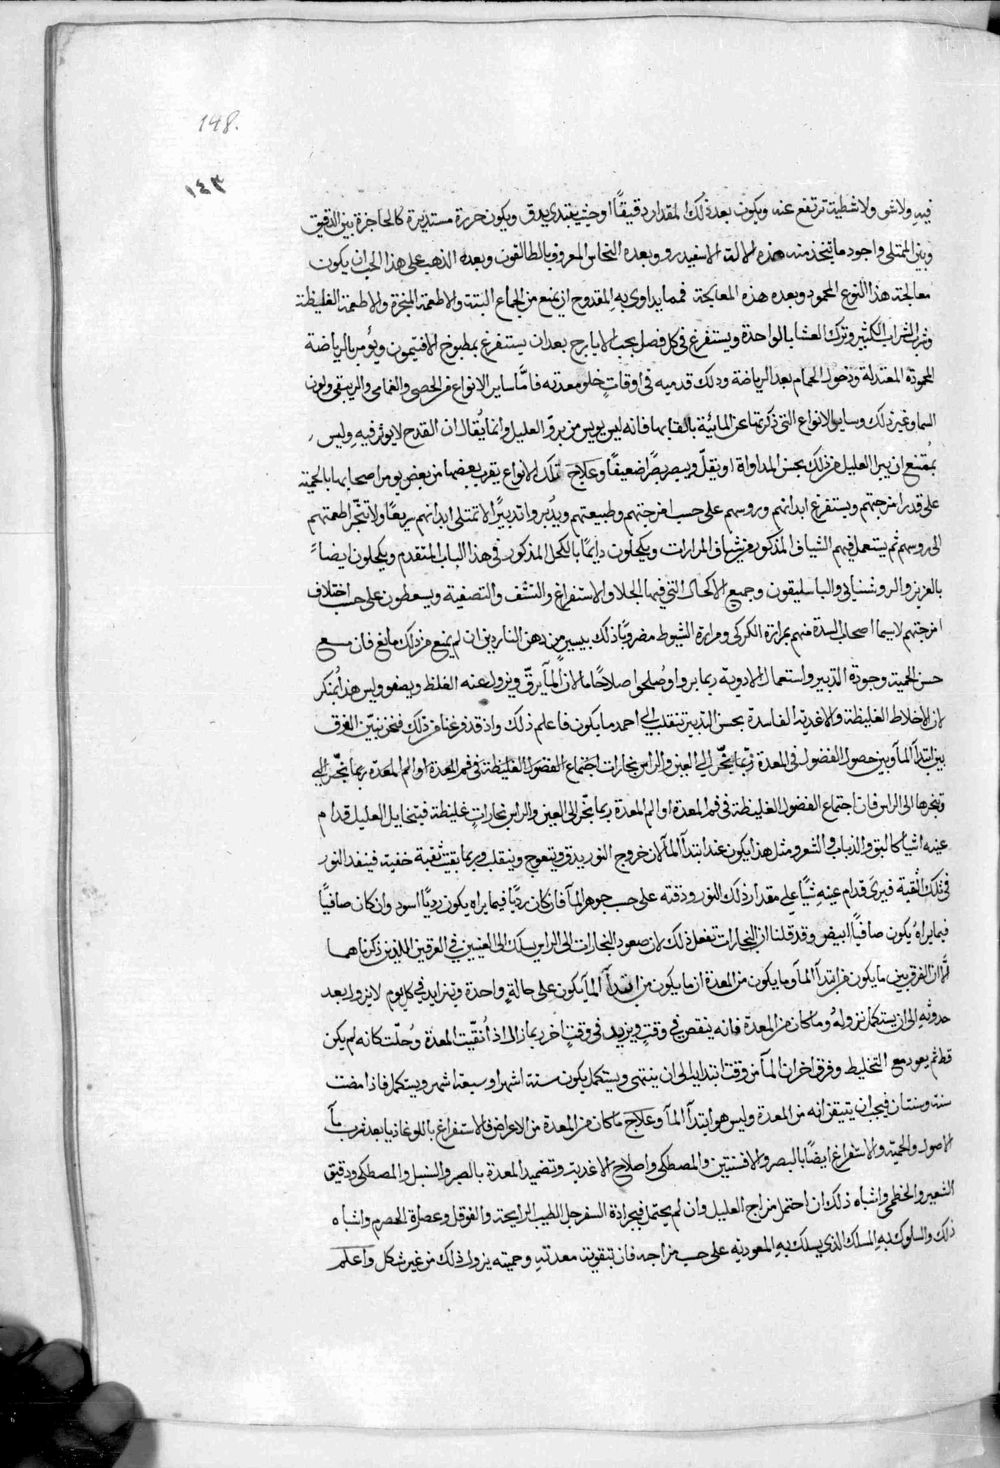 148.
١٤٣
فيه ولاش ولا شظية ترتفع عنه ويكون بعد ذلك المقدار دقيقًا وحيث يبتدي يدق ويكون حرزة مستديرة كالحاجزة بين الدقيق
وبين الممتلي واجود ما يتخذ منه هذه الالة الاسفيدرو وبعده النحاس المعروف بالطالقون وبعده الذهب على هذا يجب ان يكون
معالجة هذا النوع المحمود وبعده هذه المعالجة فمما يداوي به المقدوح ان يمنع من الجماع البتة والاطعمة المبخرة والاطعمة الغليظة
وشرب الشراب الكثير وترك العشا بالواحدة ويستفرغ في كل فصل بحب الايارج بعد ان يستفرغ بمطبوخ الافتيمون ويؤمر بالرياضة
المحمودة المعتدلة ودخول الحمام بعد الرياضة ودلك قدميه في اوقات خلو معدته فامّا ساير الانواع من الجصي والغمامي والزيبقي ولون
السما وغير ذلك وساير الانواع التي ذكرتها عن المائية بالقابها فانه ليس يويس من بروّ العليل وانما يُقال ان القدح لا يوثر فيه وليس
بمقنع ان يبرا العليل من ذلك بحسن المداواة او يقلّ ويبصر بصرًا ضعيفًا وعلاج تلك الانواع يقرب بعضها من بعض يومر اصحابها بالحمية
على قدر امزجتهم ويستفرغ ابدانهم وروسهم على حسب امزجتهم وطبيعتهم ويُدبروا تدبيرًا لا تمتلي ابدانهم سريعًا ولا تبخّر اطعمتهم
الى روسهم ثم يستعمل فيهم الشياف المذكور من شياف المرارات ويكحلون دايمًا بالكحل المذكور في هذا الباب المتقدم ويكحلون ايضًا
بالعزيز والروشنايي والباسليقون وجميع الاكحال التي فيها الجلا والاستفراغ والنشف والتصفية ويسعطون على حسب اختلاف
امزجتهم لاسيما اصحاب السدة منهم بمرارة الكركي ومرارة الشبوط مضروبًا ذلك بيسير من دهن الناردين ان لم يمنع من ذلك مانع فان مع
حسن الحمية وجودة التدبير واستعمال الادوية ربما بروا وصُلحوا صلاحًا ما لان المآ يرقّ ويزول عنه الغلظ ويصفو وليس هذا بمنكر
لان الاخلاط الغليظة والاغذية الفاسدة بحسن التدبير تنقلب الى احمد ما يكون فاعلم ذلك واذ قد فرغنا من ذلك فنحن نبيّن الفرق
بين ابتدآ المآ وبين حصول الفضول في المعدة
وتبخرها الى الراس فان اجتماع الفضول الغليظة في فم المعدة او الم المعدة ربما بخّر الى العين والراس بخارات غليظة فيتخايل العليل قدام
عينه اشيا كالبق والذباب والشعر ومثل هذا يكون عند ابتدآ المآ لان خروج النور يدق ويتعوج وينقلب وربما بقيت ثقبة خفية فينفد النور
في تلك الثقبة فيرى قدام عينه شيًا على مقدار ذلك النور ودقته على حسب جوهر المآ فان كان رديًا فيما يراه يكون رديًا اسود وان كان صافيًا
فيما يراهُ يكون صافيًا ابيض وقد قلنا ان البخارات تفعل ذلك لان صعود البخارات الى الراس يسلك الى العينين في العرقين اللذين ذكرناهما
الّا ان الفرق بين ما يكون من ابتدآ المآ وما يكون من المعدة ان ما يكون من ابتدآ المآ يكون على حالةٍ واحدة ويتزايد في كل يوم لا يزول بعد
حدوثه الى ان يستكمل نزولهُ وما كان من المعدة فانه ينقص في وقتٍ ويزيد في وقتٍ اخر ربما زال اذا نُقيّت المعدة وحُلّت كانه لم يكن
قط ثم يعود مع التخليط وفرق اخر ان المآ من وقت ابتدايه الى ان ينتهي ويستكمل يكون ستة اشهر او سبعة اشهر ويستكمل فاذا مضت
سنة وسنتان فيجب ان يتيقن انه من المعدة وليس هو ابتدآ المآ وعلاج ما كان من المعدة من الاعراض فالاستفراغ باللوغاذيا بعد شرب مآ
الاصول والحمية والاستفراغ ايضًا بالصبر والافسنتين والمصطكي واصلاح الاغذية وتضميد المعدة بالصبر والسنبل والمصطكي ودقيق
الشعير والخطمي واشباه ذلك ان احتمل مزاج العليل وان لم يحتمل فبجرادة السفرجل الطيب الرايحة والفوفل وعصارة الحصرم واشباه
ذلك والسلوك به المسلك الذي يسلك به المعودين على حسب مزاجه فان بتقوية معدته وحميته يزول ذلك من غير شكل واعلم